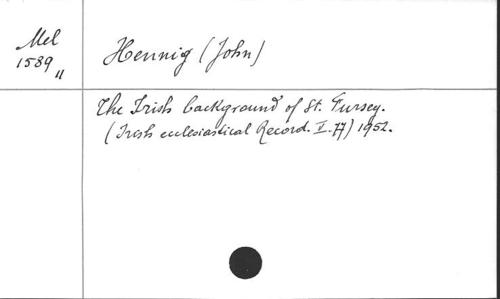 Mel
1589
"
Hennig (John)
The Irish background of St. Fursey.
(Irish ecclesiastical Record. I. 77) 1952.